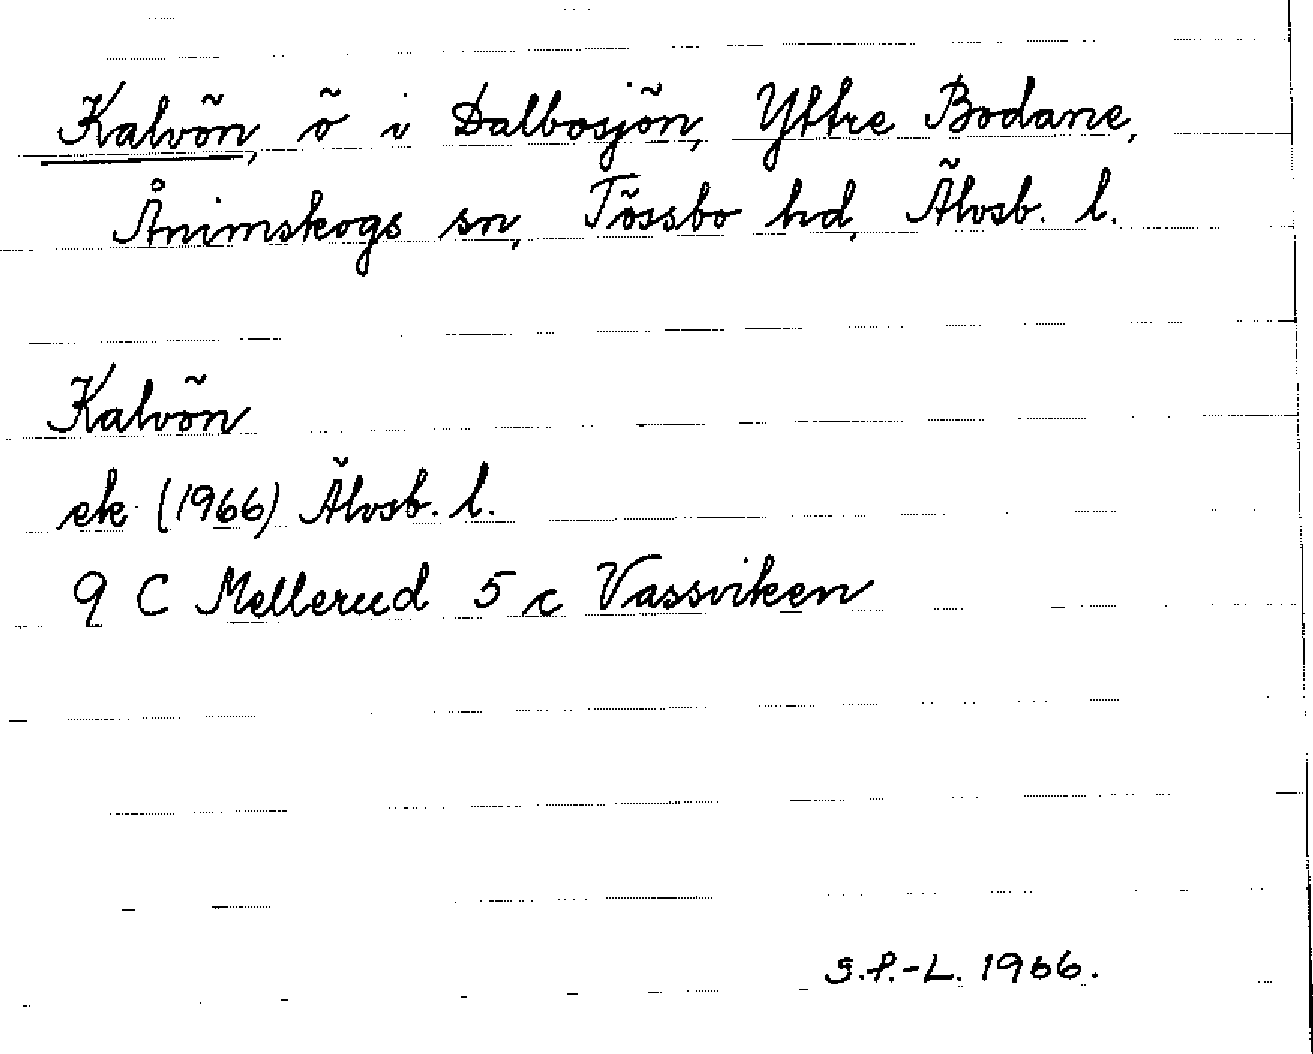 Kalvön, ö i Dalbosjön, Yttre Bodane,
Ånimskogs sn, Tössbo hd, Älvsb. l.
Kalvön
ek (1966) Älvsb. l.
9 C Mellerud 5 c Vassviken
S.P.-L. 1966.